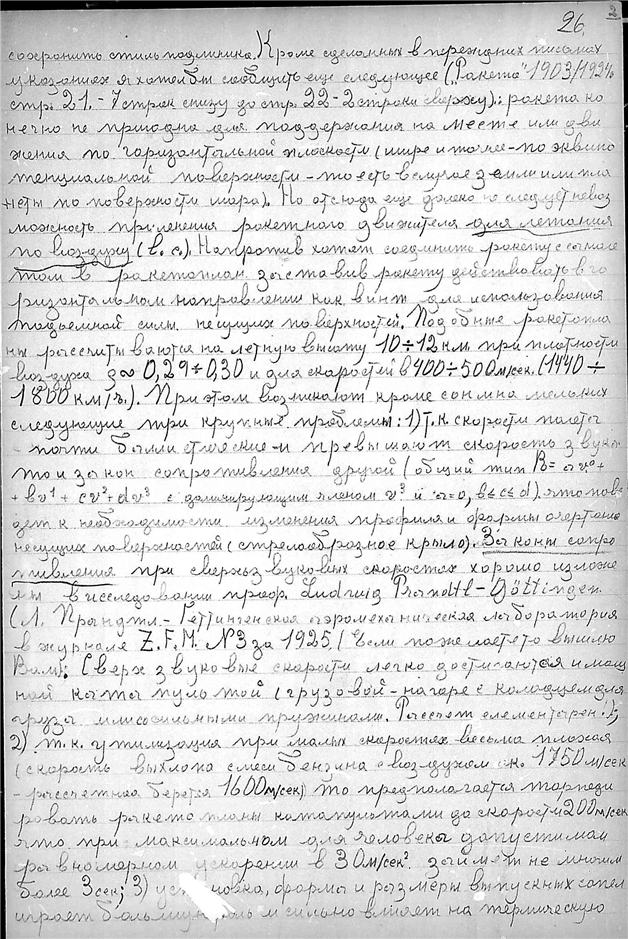 26. 2
сохранить стиль подлинника. Кроме сделанных в передних письмах
указаниях я хотел бы сообщить еще следующее („Ракета" 1903/1924
стр. 21. - 7 строк снизу до стр. 22 - 2 строки сверху).: ракета ко
нечно не пригодна для поддержания на месте или дви
жения по горизонтальной плоскости (шире и точнее - по эквипо
тенциальной поверхности - то есть в случае земли или пла
неты по поверхности шара). Но отсюда еще далеко не следует невоз
можность применения ракетного движителя для летания
по воздуху (в. с.). Напротив хотят соединить ракету с самоле
том в ракетоплан заставив ракету действовать в го
ризонтальном направлении как винт для использования
подъемной силы несущих поверхностей. Подобные ракетопла
ны рассчитываются на летную высоту 10÷12 км. при плотности
воздуха д∞ 0,29÷0,30 и для скоростей в 400÷500 м/сек. (1440÷
1800 км/ч.). При этом возникают кроме сонма мелких
следующие три крупные проблемы: 1) т.к. скорости полета
- почти баллистические - и превышают скорость звука
то и закон сопротивления другой (общий тип R = av⁰ +
+ bv¹ + cv² + dv³ с доминирующим членом v³ и a=0, b≤c≤d) что пове
дет к необходимости изменения профиля и формы очертания
несущих поверхностей (стрелообразное крыло). Законы сопро
тивления при сверхзвуковых скоростях хорошо изложе
ны в исследовании проф. Ludwig Prandtl - Göttingen.
(Л. Прандтл. - Геттингенская аэромеханическая лаборатория
в журнале Z.F.M. №3 за 1925. (Если пожелаете то вышлю
Вам): Сверхзвуковые скорости легко достигаются и мощ
ной катапультой (грузовой - на горе с колодцем для
груза или сильными пружинами. Рассчет элементарен!);
2) т.к. утилизация при малых скоростях весьма плохая
(скорость выхлопа смеси бензина с воздухом ок. 1750 м/сек
- рассчетная берется 1600 м/сек) то предполагается торпеди
ровать ракетопланы катапультами до скорости 200 м/сек
что при максимальном для человека допустимом
равномерном ускорении в 30 м/сек² займет не многим
более 3 сек; 3) установка, форма и размеры выпускных сопел
играет большую роль и сильно влияет на термическую